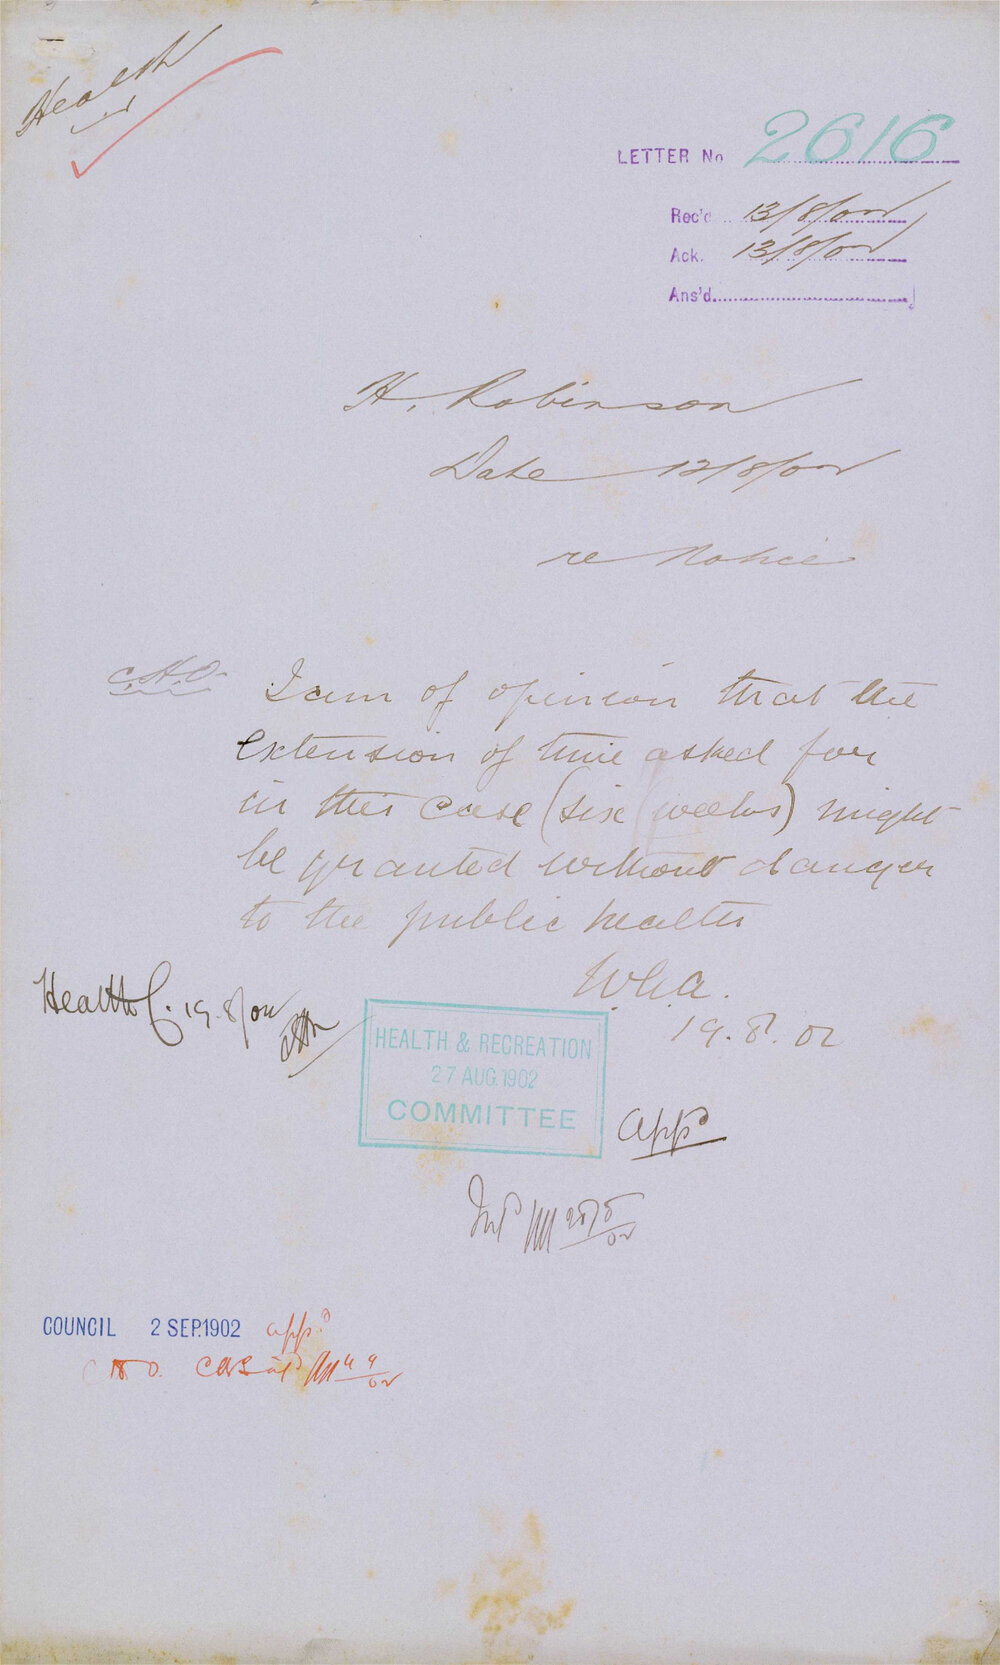 Health
LETTER No 2616
Rec'd 13/8/02
Ack. 13/8/02
Ans'd
H. Robinson
Date 12/8/02
re Notice
C.H.O.
I am of opinion that the
extension of time asked for
in this case (six weeks) might
be granted without danger
to the public health
W.G.A.
19.8.02
Health C. 19.8/02
HEALTH & RECREATION
27 AUG.1902
COMMITTEE
appd
28/8/02
COUNCIL 2 SEP.1902 appd